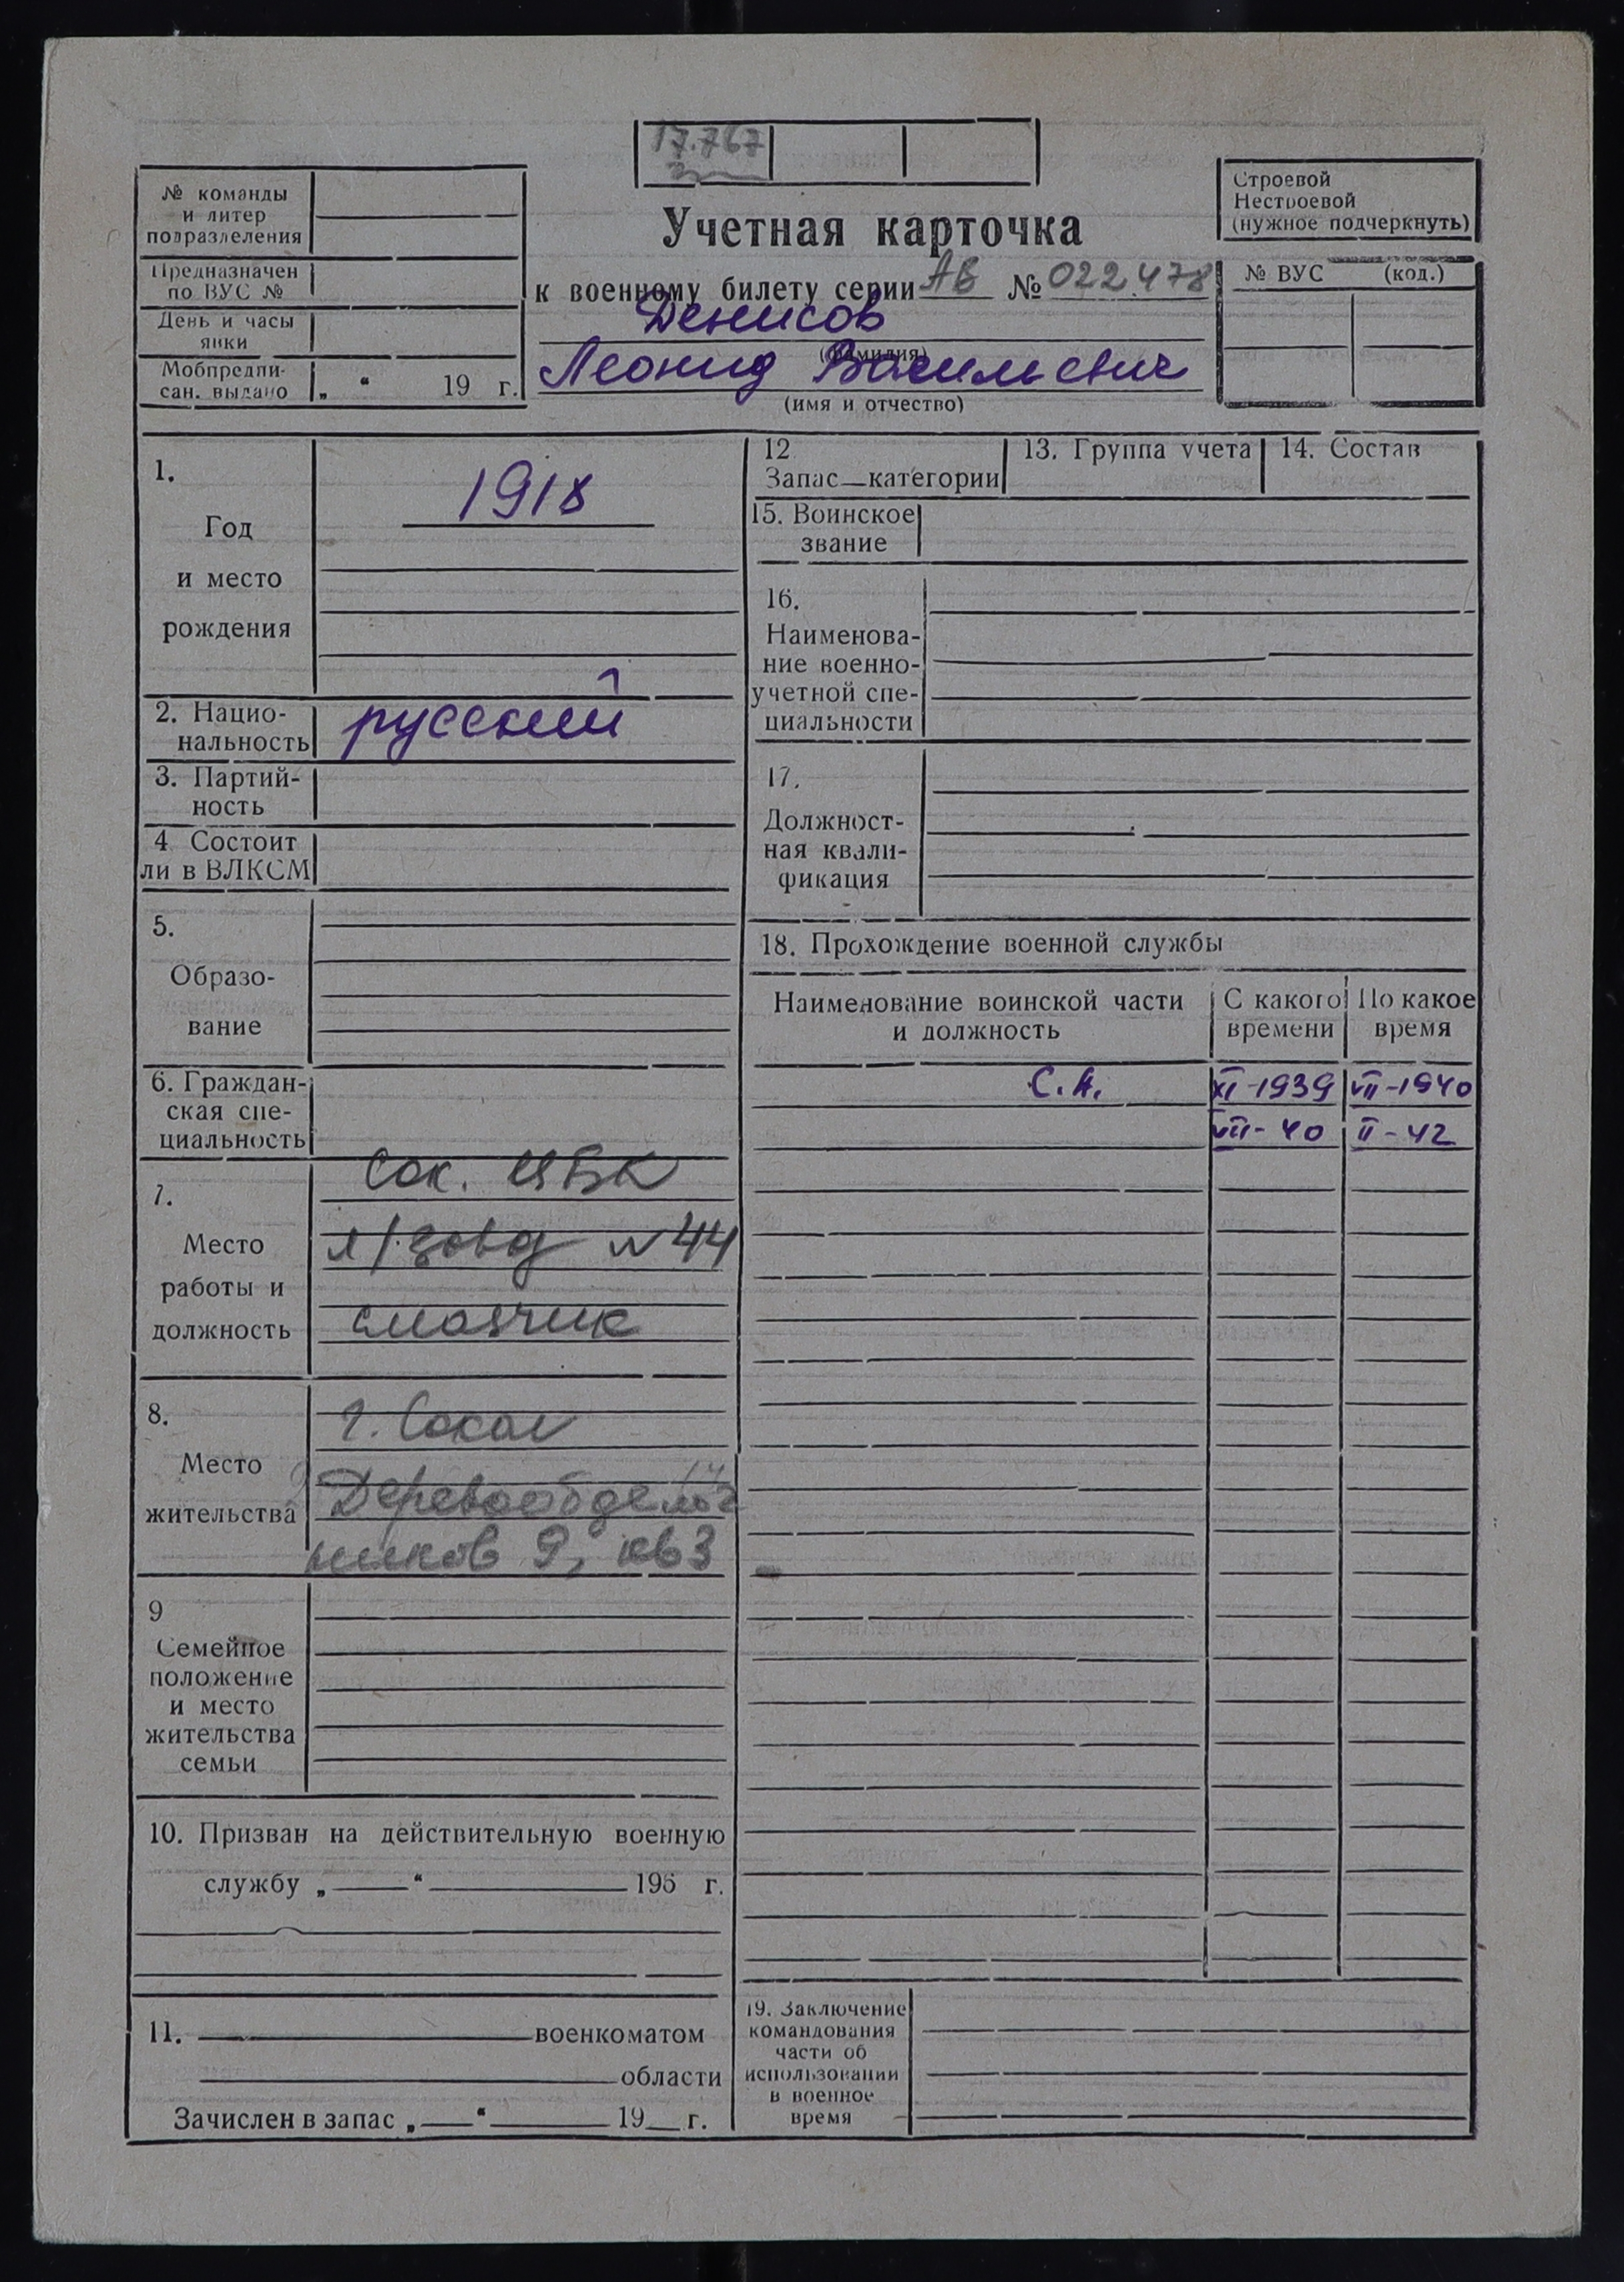 17.767
№ команды
и литер
подразделения
Предназначен
по ВУС №
День и часы
явки
Мобпредпи-
сан. выдано „ “ 19 г.
Учетная карточка
к военному билету серии АВ № 022478
Денисов
(фамилия)
Леонид Васильевич
(имя и отчество)
Строевой
Нестроевой
(нужное подчеркнуть)
№ ВУС (код.)
1.
Год
и место
рождения
1918
2. Нацио-
нальность русский
3. Партий-
ность
4 Состоит
ли в ВЛКСМ
5.
Образо-
вание
6. Граждан-
ская спе-
циальность
7.
Место
работы и
должность
Сок. ЦБК
л/завод №44
смазчик
8.
Место
жительства
г. Сокол
Деревообдел
ников 9, кв 3
9
Семейное
положение
и место
жительства
семьи
10. Призван на действительную военную
службу „ “ 195 г.
11. военкоматом
области
Зачислен в запас „ “ 19 г.
12
Запас—категории
13. Группа учета
14. Состав
15. Воинское
звание
16.
Наименова-
ние военно-
учетной спе-
циальности
17.
Должност-
ная квали-
фикация
18. Прохождение военной службы
Наименование воинской части
и должность
С какого
времени
По какое
время
С.А. XI-1939 VII-1940
VII-40 II-42
19. Заключение
командования
части об
использовании
в военное
время